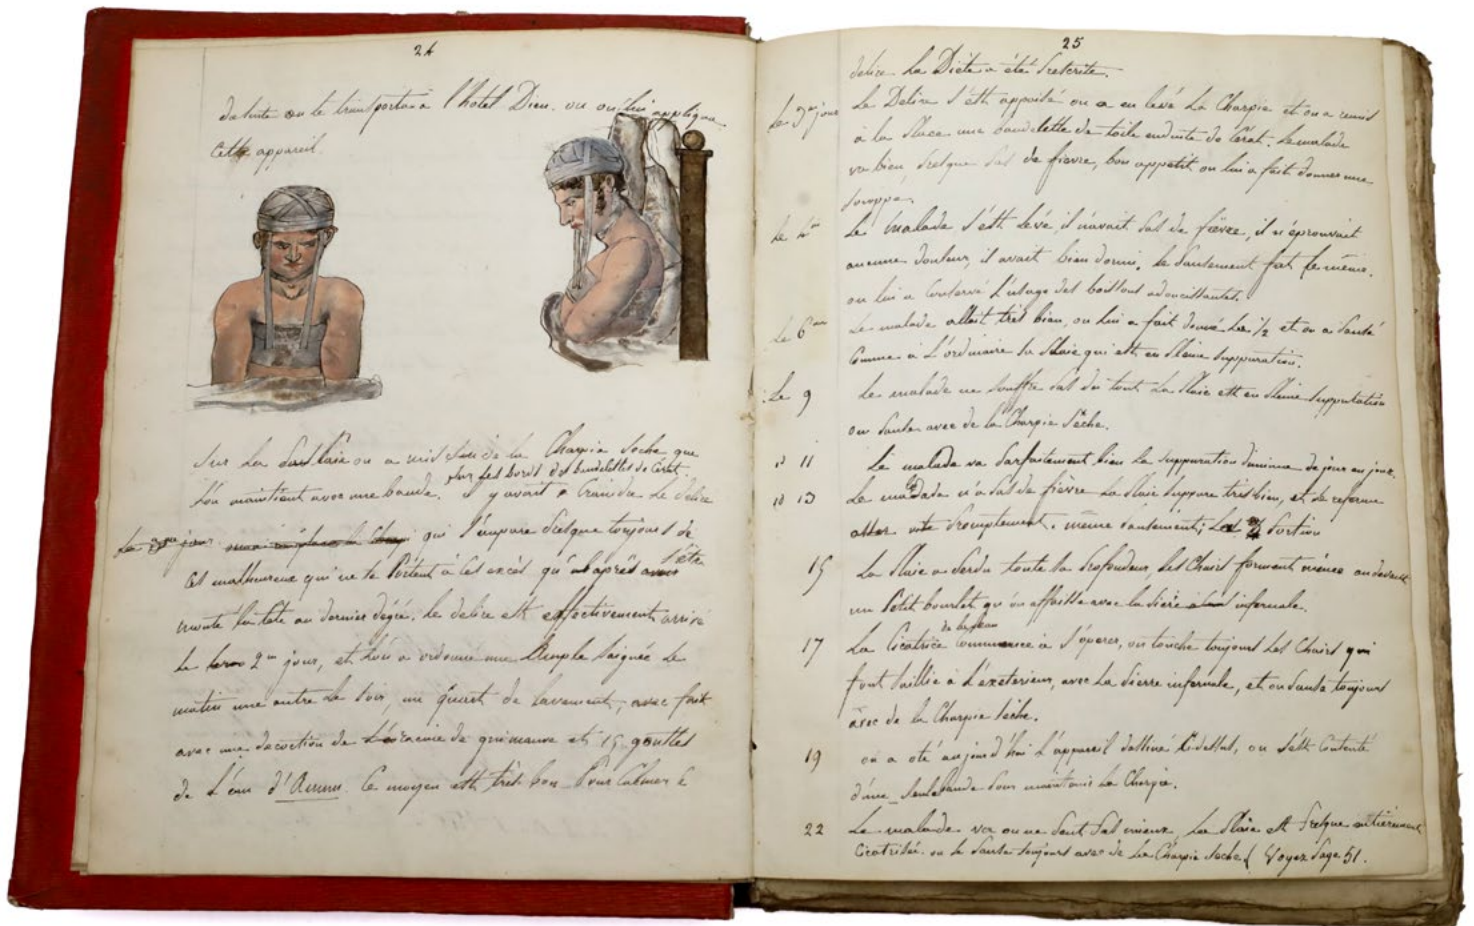 24
de suite on le transporta a l'hotel Dieu. ou on lui appliqua
cette appareil.
Sur la Plaie on a mis de la Charpie seche que
sur les bords des bandelettes de Cerat
l'on maintient avec une bande. il y avait a Craindre le delire
Le 3me jour qui s'empare presque toujours de
s'être
ces malheureux qui ne se Portent à cet excès qu'après avoir
monté la tete au dernier dégré. le delire est effectivement arrivé
le 2me jour, et l'on a ordonné une Ample saignée le
matin une autre le soir, un quart de lavement, avec fait
avec une decoction de racine de guimauve et 15 gouttes
de L'eau d'Anum. Ce moyen est très bon Pour Calmer le
25
delire la Diete a été Prescrite.
Le 3me jour Le Delire s'est appaisé on a en levé la Charpie et on a remis
à la Place une bandelette de toile enduite de Cérat. Le malade
va bien, Presque Pas de fievre, bon appetit on lui a fait donner une
Souppe.
Le 4me Le malade s'est levé, il n'avait Pas de fièvre, il n'éprouvait
aucune douleur, il avait bien dormi. le Pansement fut le même.
on lui a Conservé l'usage des boissons adoucissantes.
Le 6me Le malade allait très bien, on lui a fait donné la 1/2 et on a Pansé
Comme à L'ordinaire la Plaie qui est en Pleine suppuration.
Le 9 Le malade ne souffre Pas du tout La Plaie est en Pleine suppuration
on Panse avec de la Charpie sêche.
id 11 Le malade va Parfaitement bien la suppuration diminue de jour en jour.
id 13 Le malade n'a Pas de fièvre la Plaie suppure très bien, et se referme
assez Promptement. même Pansement; Portion
15 La Plaie a Perdu toute sa Profondeur, les Chairs forment même au dehors
un Petit bourlet qu'on affaisse avec la Pierre infernale.
de la peau
17 La Cicatrice Commence à s'operer, on touche toujours les Chairs qui
font Saillie à L'exterieur, avec la Pierre infernale, et on Panse toujours
avec de la Charpie sêche.
19 on a oté aujourd'hui L'appareil dessiné Ci-dessus, on s'est Contenté
d'une seule bande Pour maintenir la Charpie.
22 Le malade va on ne Peut Pas mieux, la Plaie est Presque entièrement
Cicatrisée. on le Panse toujours avec de la Charpie seche. ( Voyez Page 51.